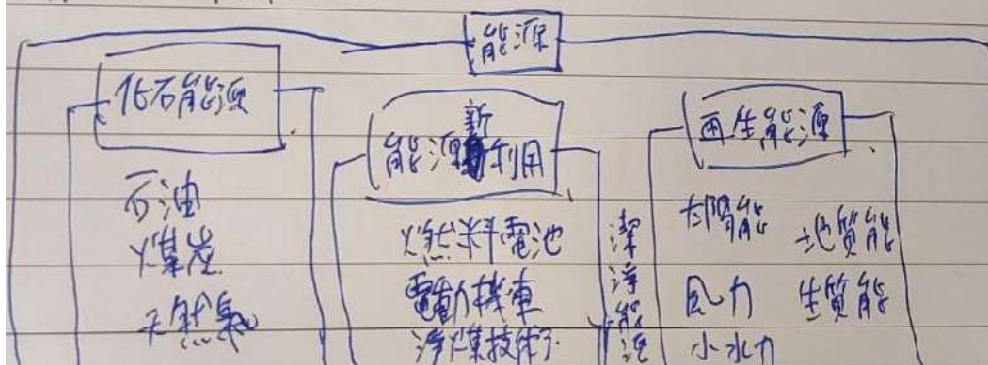 能源
化石能源
石油
煤炭
天然氣
能源新利用
燃料電池
電動機車
淨煤技術
潔淨能源
再生能源
太陽能 地質能
風力 生質能
小水力